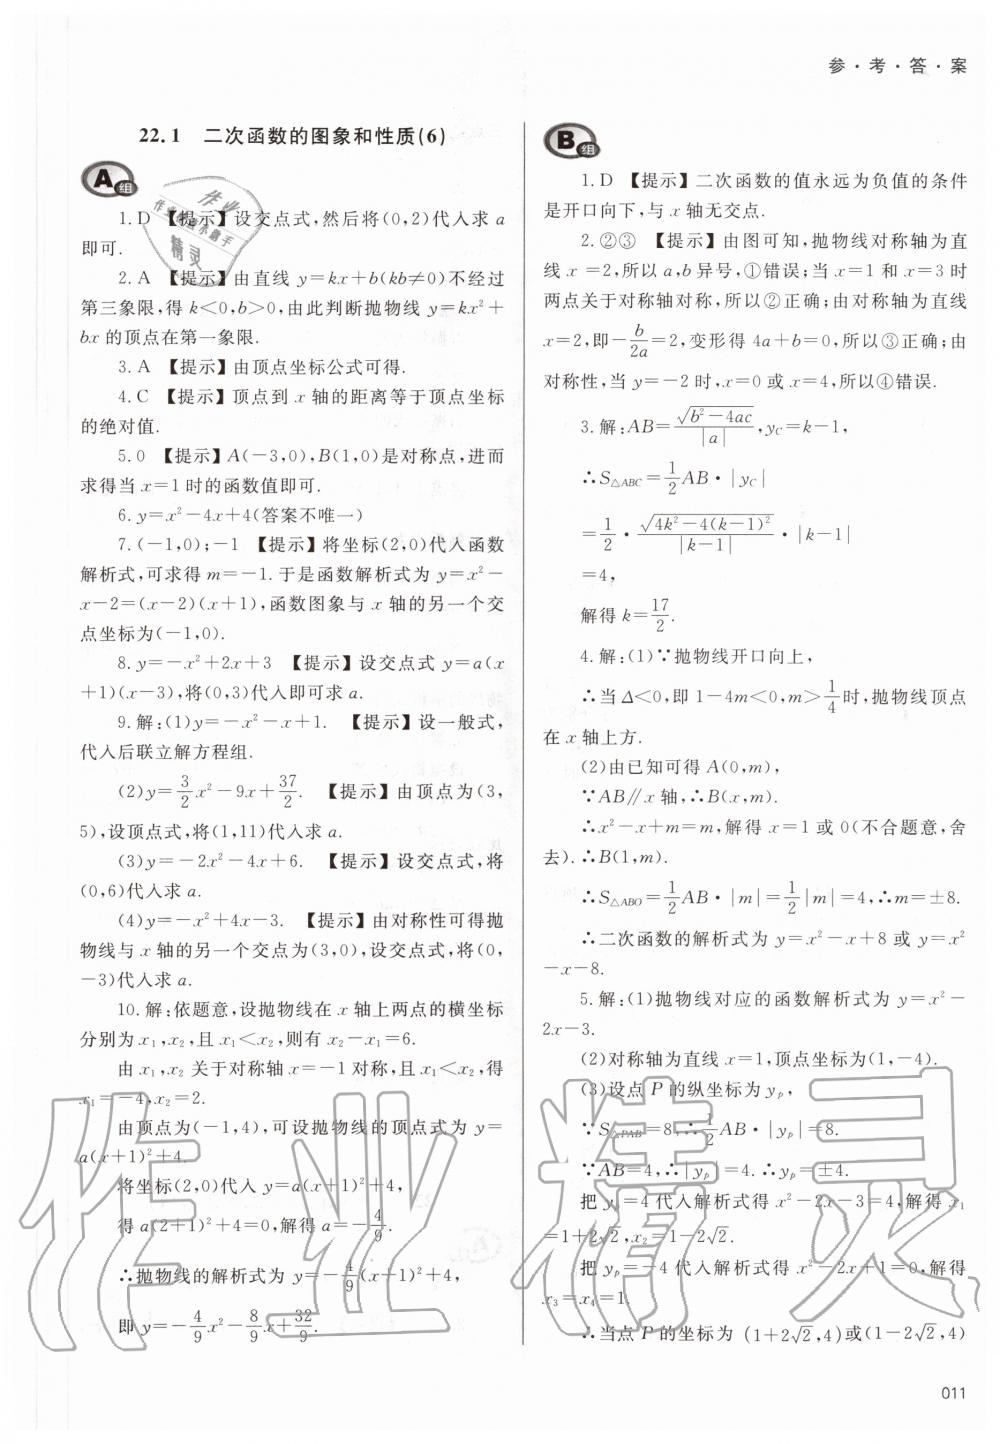 参·考·答·案
22.1 二次函数的图象和性质(6)
A组
1.D 【提示】设交点式,然后将(0,2)代入求 a
即可.
2.A 【提示】由直线 y=kx+b(kb≠0)不经过
第三象限,得 k<0,b>0,由此判断抛物线 y=kx²+
bx 的顶点在第一象限.
3.A 【提示】由顶点坐标公式可得.
4.C 【提示】顶点到 x 轴的距离等于顶点坐标
的绝对值.
5.0 【提示】A(-3,0),B(1,0)是对称点,进而
求得当 x=1 时的函数值即可.
6.y=x²-4x+4(答案不唯一)
7.(-1,0);-1 【提示】将坐标(2,0)代入函数
解析式,可求得 m=-1.于是函数解析式为 y=x²-
x-2=(x-2)(x+1),函数图象与 x 轴的另一个交
点坐标为(-1,0).
8.y=-x²+2x+3 【提示】设交点式 y=a(x
+1)(x-3),将(0,3)代入即可求 a.
9.解:(1)y=-x²-x+1. 【提示】设一般式,
代入后联立解方程组.
(2)y=3/2x²-9x+37/2. 【提示】由顶点为(3,
5),设顶点式,将(1,11)代入求 a.
(3)y=-2x²-4x+6. 【提示】设交点式,将
(0,6)代入求 a.
(4)y=-x²+4x-3. 【提示】由对称性可得抛
物线与 x 轴的另一个交点为(3,0),设交点式,将(0,
-3)代入求 a.
10.解:依题意,设抛物线在 x 轴上两点的横坐标
分别为 x₁,x₂,且 x₁<x₂,则有 x₂-x₁=6.
由 x₁,x₂ 关于对称轴 x=-1 对称,且 x₁<x₂,得
x₁=-4,x₂=2.
由顶点为(-1,4),可设抛物线的顶点式为 y=
a(x+1)²+4.
将坐标(2,0)代入 y=a(x+1)²+4,
得 a(2+1)²+4=0,解得 a=-4/9.
∴抛物线的解析式为 y=-4/9(x+1)²+4,
即 y=-4/9x²-8/9x+32/9.
B组
1.D 【提示】二次函数的值永远为负值的条件
是开口向下,与 x 轴无交点.
2.②③ 【提示】由图可知,抛物线对称轴为直
线 x=2,所以 a,b 异号,①错误;当 x=1 和 x=3 时
两点关于对称轴对称,所以②正确;由对称轴为直线
x=2,即-b/2a=2,变形得 4a+b=0,所以③正确;由
对称性,当 y=-2 时,x=0 或 x=4,所以④错误.
3.解:AB=√(b²-4ac)/|a|,y_C=k-1,
∴S△ABC=1/2AB·|y_C|
=1/2·√(4k²-4(k-1)²)/|k-1|·|k-1|
=4,
解得 k=17/2.
4.解:(1)∵抛物线开口向上,
∴当 Δ<0,即 1-4m<0,m>1/4时,抛物线顶点
在 x 轴上方.
(2)由已知可得 A(0,m),
∵AB∥x 轴,∴B(x,m).
∴x²-x+m=m,解得 x=1 或 0(不合题意,舍
去).∴B(1,m).
∴S△ABO=1/2AB·|m|=1/2|m|=4,∴m=±8.
∴二次函数的解析式为 y=x²-x+8 或 y=x²
-x-8.
5.解:(1)抛物线对应的函数解析式为 y=x²-
2x-3.
(2)对称轴为直线 x=1,顶点坐标为(1,-4).
(3)设点 P 的纵坐标为 y_p,
∵S△PAB=8,∴1/2AB·|y_p|=8.
∵AB=4,∴|y_p|=4.∴y_p=±4.
把 y_p=4 代入解析式得 x²-2x-3=4,解得 x₁
=1+2√2,x₂=1-2√2.
把 y_p=-4 代入解析式得 x²-2x+1=0,解得
x₃=x₄=1.
∴当点 P 的坐标为 (1+2√2,4)或(1-2√2,4)
011
作业精灵